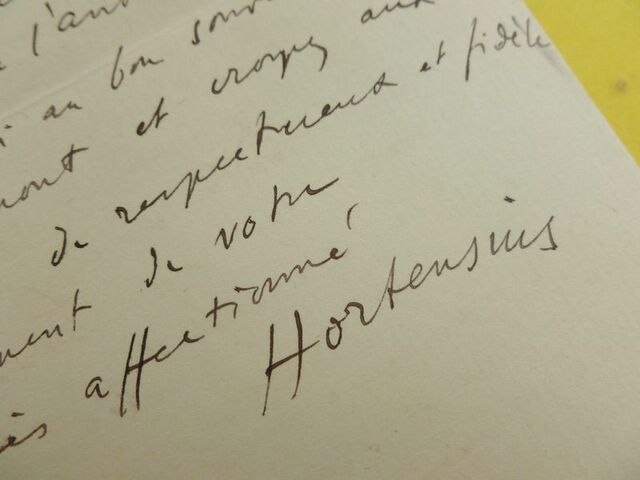 l'an
au bon souv
ont et croyez aux
de respectueux et fidèle
ment de votre
ès affectionné
Hortensius